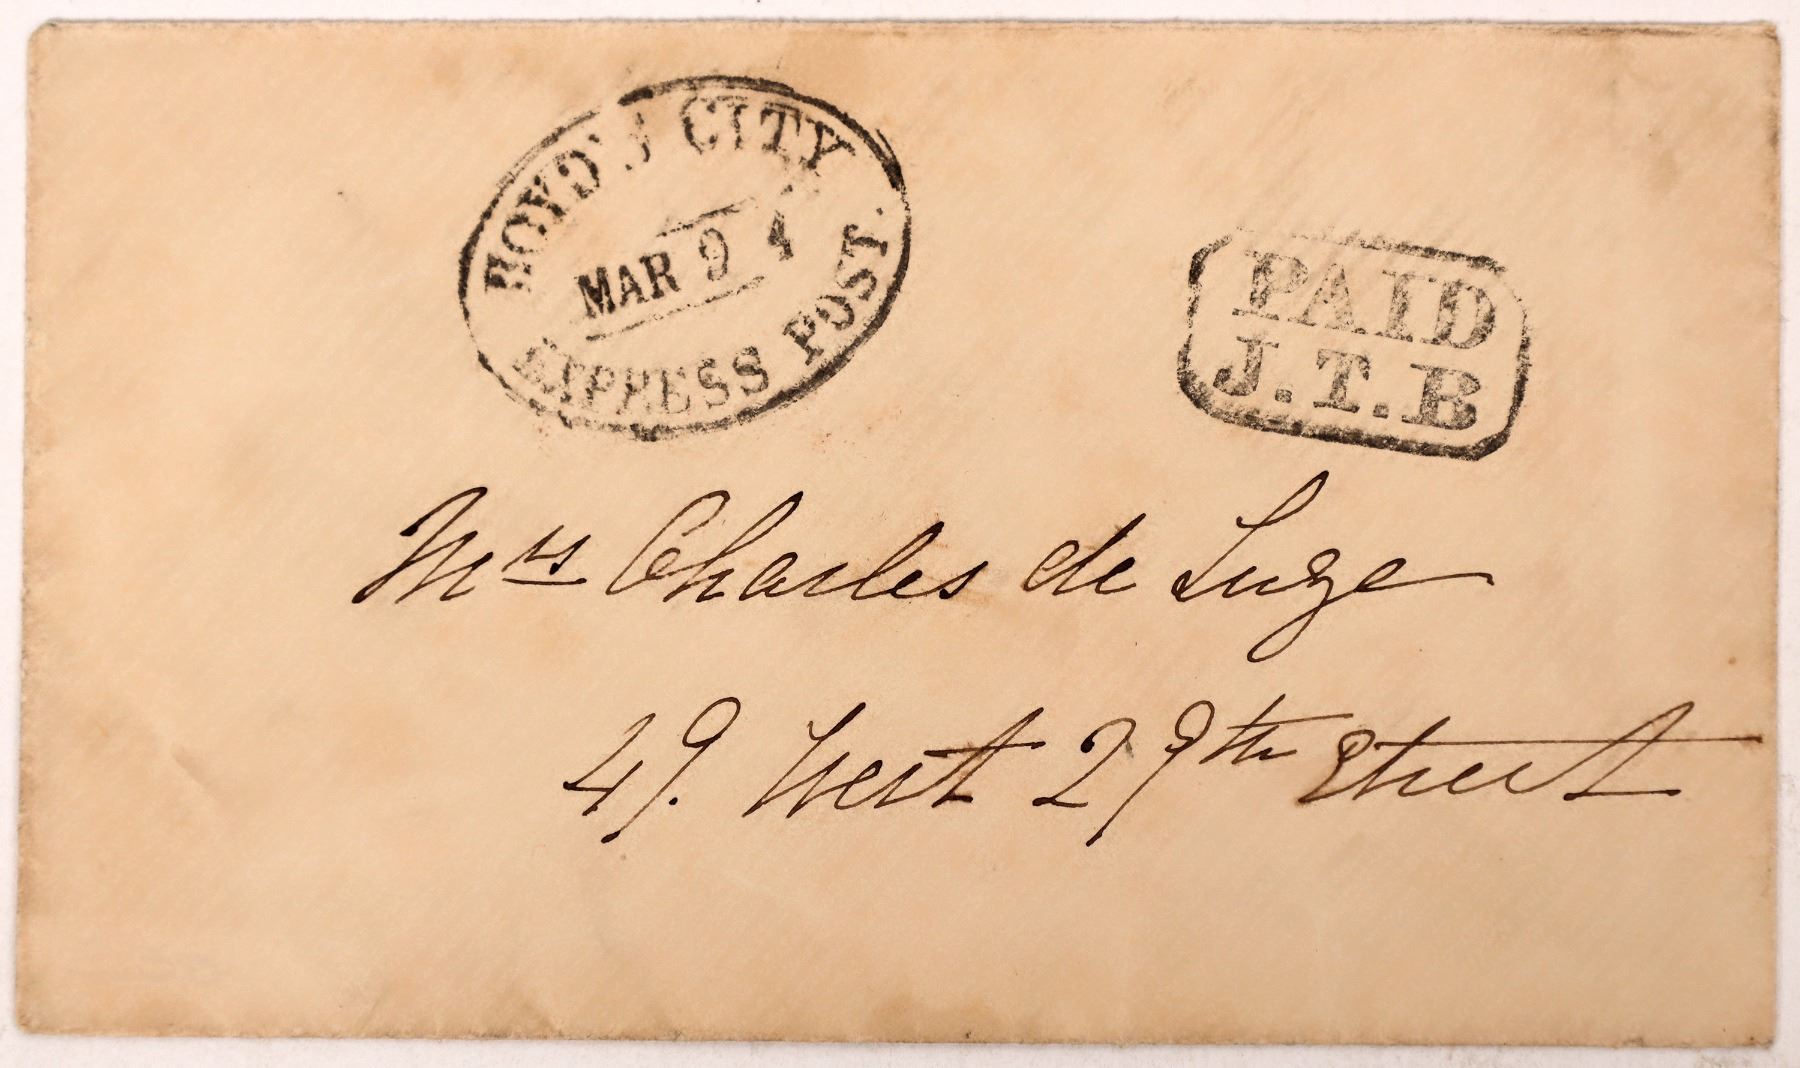 BOYD'S CITY
MAR 9 4
EXPRESS POST.
PAID
J.T.B
Mrs Charles de Luze
49. West 29th Street